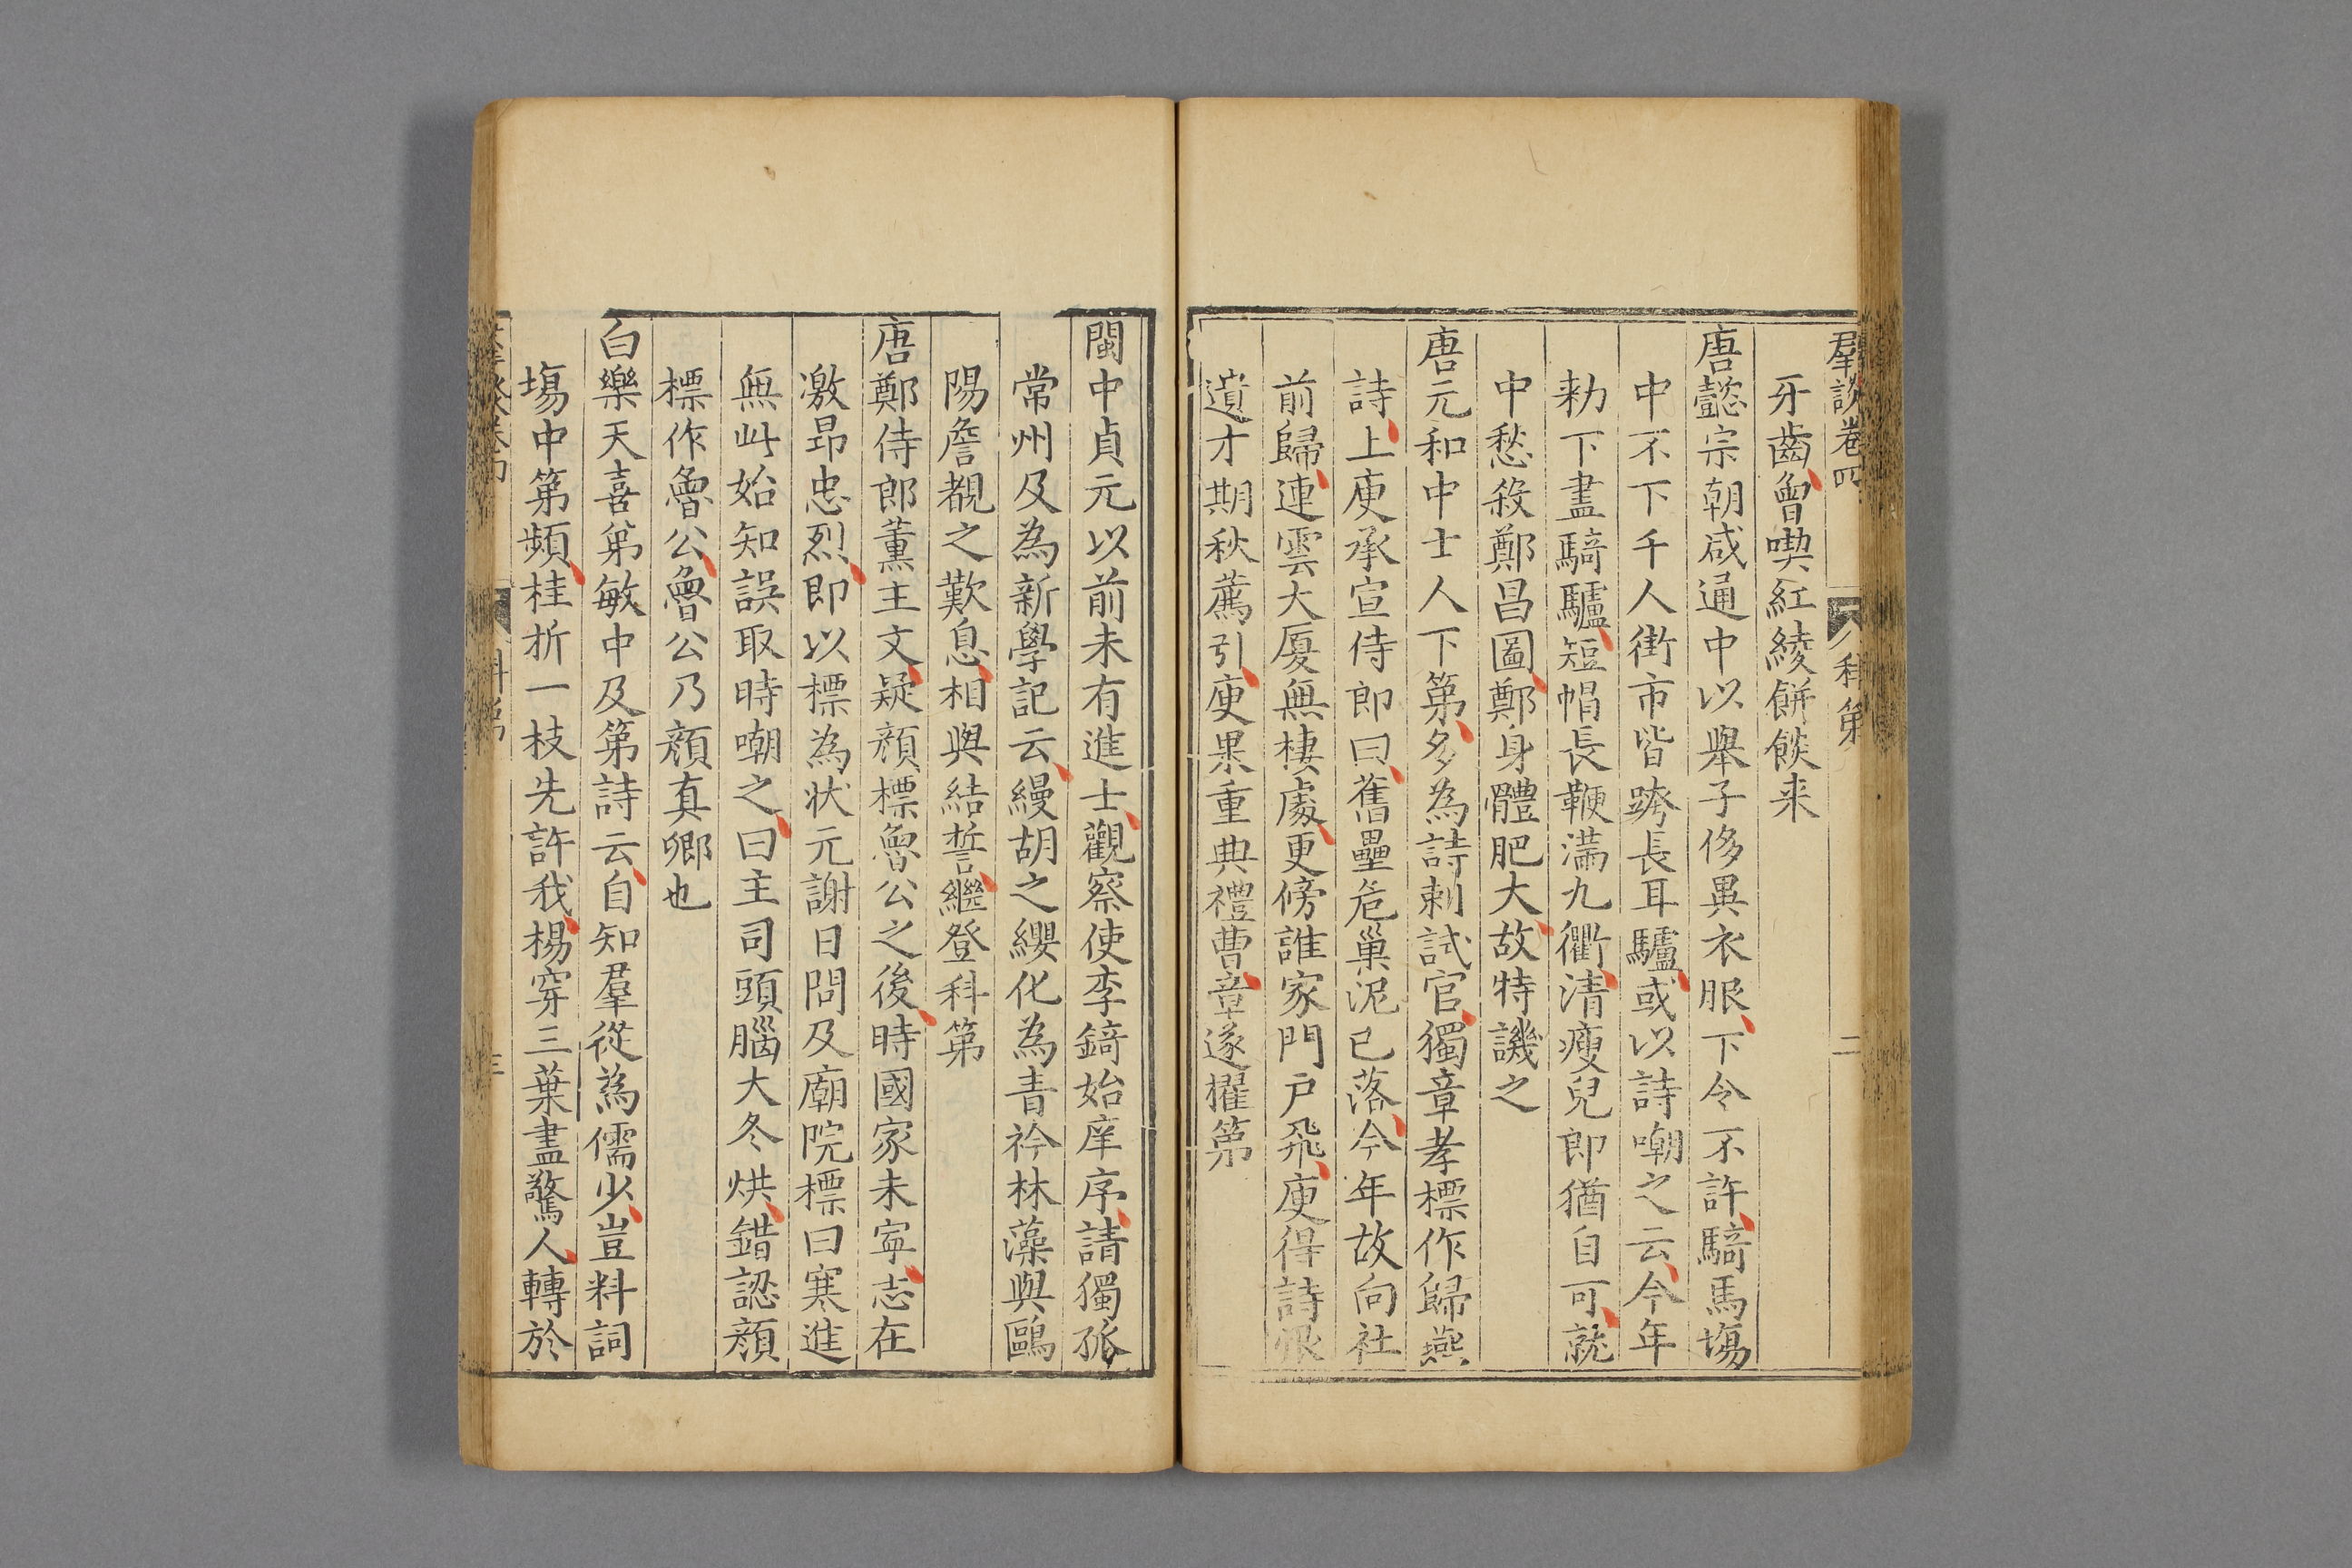 羣談卷四 科第 二
牙齒曾喫紅綾餅餤来
唐懿宗朝咸通中以舉子侈異衣服下令不許騎馬塲
中不下千人街市皆跨長耳驢或以詩嘲之云今年
勑下盡騎驢短㡌長鞭滿九衢清瘦兒郎猶自可就
中愁殺鄭昌圖鄭身體肥大故特譏之
唐元和中士人下第多為詩刺試官獨章孝標作歸燕
詩上庾承宣侍郎曰舊壘危巢泥已落今年故向社
前歸連雲大厦無棲處更傍誰家門戸飛庾得詩恨
遺才期秋薦引庾果重典禮曹章遂擢第
閩中貞元以前未有進士觀察使李錡始庠序請獨孤
常州及為新學記云縵胡之纓化為青衿林藻與鷗
陽詹覩之歎息相與結誓繼登科第
唐鄭侍郎薰主文疑顔標魯公之後時國家未寧志在
激昻忠烈即以標為状元謝日問及廟院標曰寒進
無此始知誤取時嘲之曰主司頭腦大冬烘錯認顔
標作魯公魯公乃顔真卿也
白樂天喜弟敏中及第詩云自知羣從為儒少豈料詞
塲中第頻桂折一枝先許我楊穿三葉盡驚人轉於
卷四 科第 三